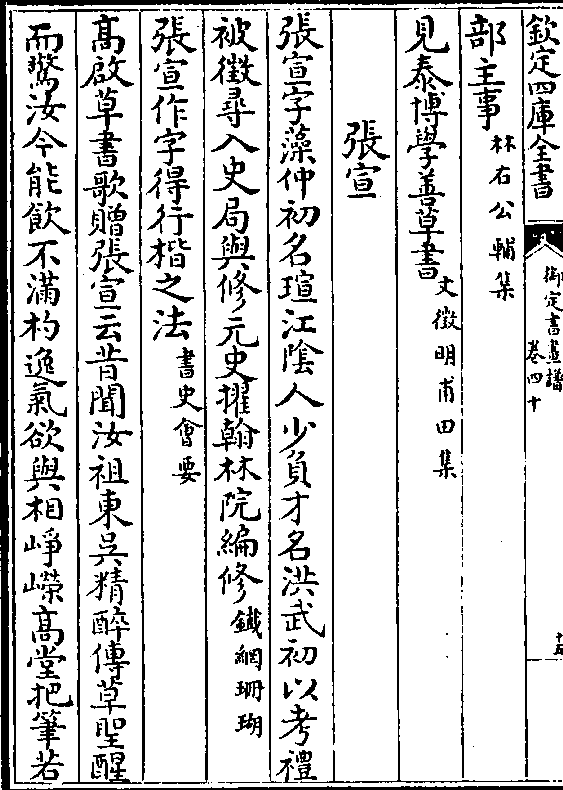 欽定四庫全書
御定書畫譜
卷四十
十五
部主事林右公輔集
見泰博學善草書文徵明甫田集
張宣
張宣字藻仲初名瑄江陰人少負才名洪武初以考禮
被徵尋入史局與修元史擢翰林院編修鐵網珊瑚
張宣作字得行楷之法書史會要
高啟草書歌贈張宣云昔聞汝祖東吳精醉傳草聖醒
而驚汝今能飲不滿杓逸氣欲與相崢嶸高堂把筆若